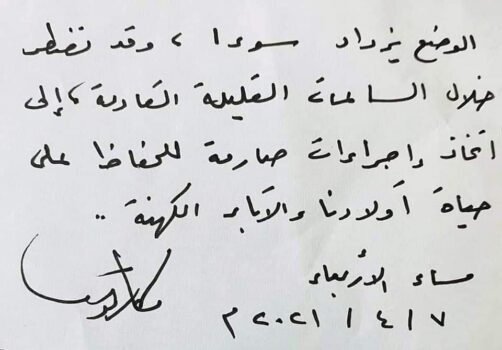 الوضع يزداد سوءا، وقد نضطر
خلال الساعات القليلة القادمة، إلى
اتخاذ إجراءات صارمة للحفاظ على
حياة أولادنا والآباء الكهنة ..
مساء الأربعاء
٧ / ٤ / ٢٠٢١ م